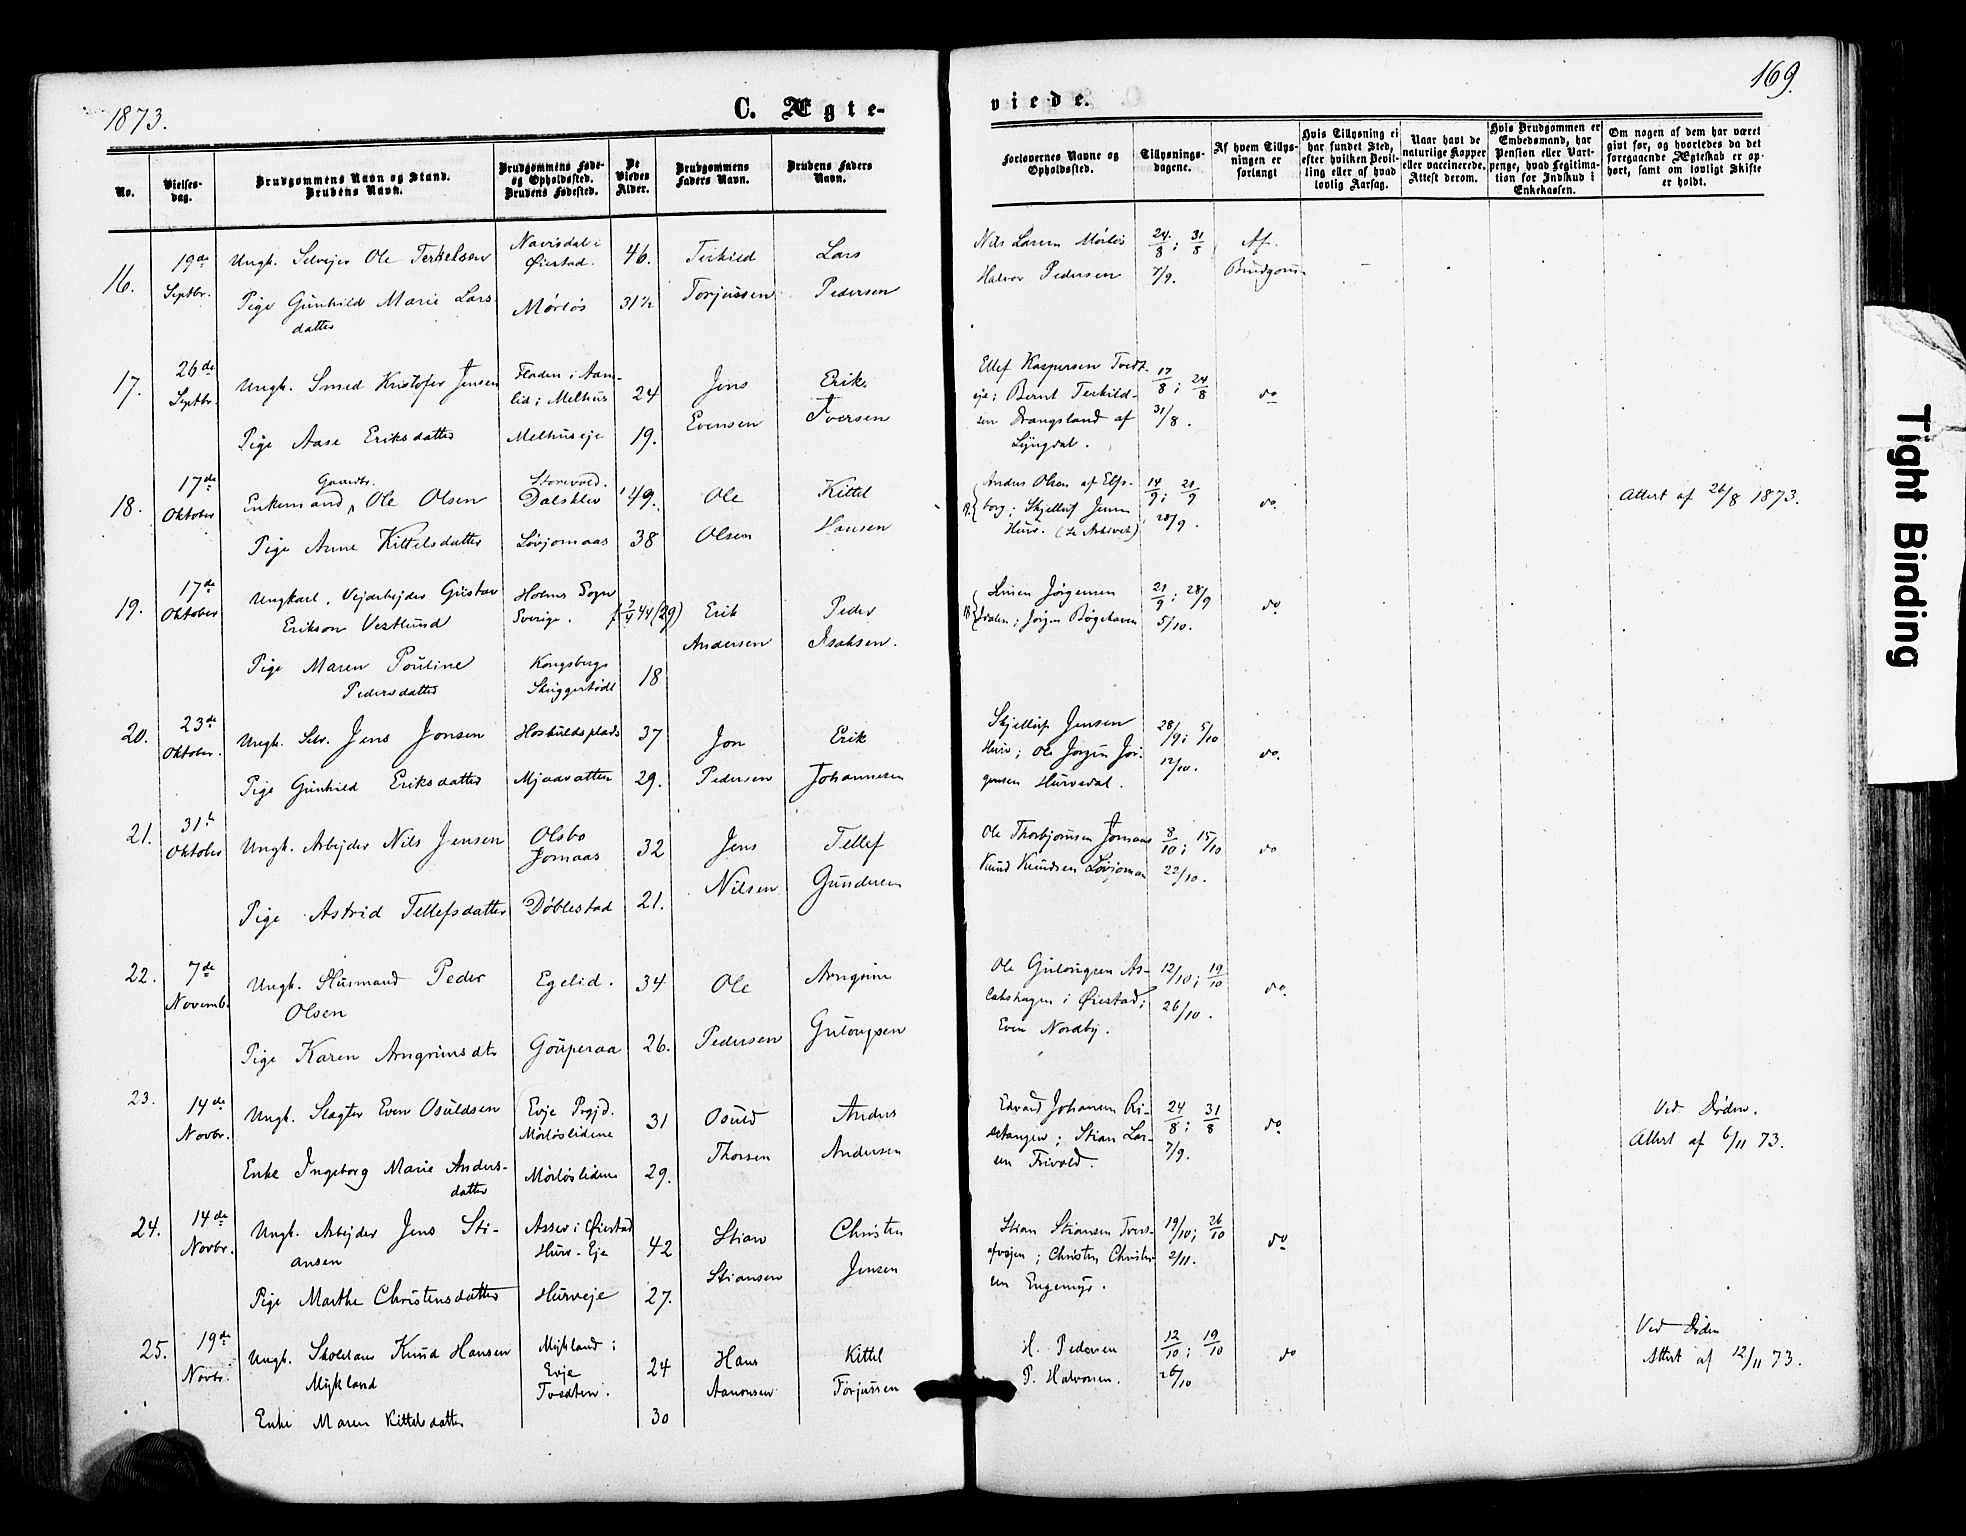 1873.
C. Ægte-
viede.
169.
No.
Vielses-
dag.
Brudgommens Navn og Stand.
Brudens Navn.
Brudgommens Føde-
og Opholdssted.
Brudens Fødested.
De
Viedes
Alder.
Brudgommens
Faders Navn.
Brudens Faders
Navn.
Forlovernes Navne og
Opholdssted.
Tillysnings-
dagene.
Af hvem Tillys-
ningen er
forlangt
Hvis Tillysning ei
har fundet Sted,
efter hvilken Bevil-
ling eller af hvad
lovlig Aarsag.
Naar havt de
naturlige Kopper
eller vaccinerede.
Attest derom.
Hvis Brudgommen er
Embedsmand, har
Pension eller Vart-
penge, hvad Legitima-
tion for Indskud i
Enkekassen.
Om nogen af dem har været
gift før, og hvorledes da det
foregaaende Ægteskab er op-
hørt, samt om lovligt Skifte
er holdt.
16.
19de
Septbr.
Ungk. Selvejer Ole Terkelsen
Pige Gunhild Marie Lars-
datter
Navisdal i
Øiestad.
Mørløs
46.
31½
Terkild
Torjussen
Lars
Pedersen
Nils Larsen Mørløs
Halvor Pedersen
24/8; 31/8
7/9.
Af
Brudgom
17.
26de
Septbr.
Ungk. Smed Kristofer Jensen
Pige Aase Eriksdatter
Fladen i Aam-
lid; Melhus
Melhuseje
24
19.
Jens
Evensen
Erik
Iversen
Ellef Kaspersen Tvedt-
eje; Bernt Terkild-
sen Drangsland af
Lyngdal.
17/8; 24/8
31/8.
do
18.
17de
Oktober
Gaardbr.
Enkemand, Ole Olsen
Pige Anne Kittelsdatter
Storevold.
Dalsklev
Løvjomaas
49.
38
Ole
Olsen
Kittel
Hansen
Anders Olsen af Elfs-
borg; Skjellef Jensen
Hurv. (se Arkivet)
14/9; 21/9
28/9.
do
Attest af 26/8 1873.
19.
17de
Oktober
Ungkarl, Vejarbejder Gustav
Erikson Vestlund
Pige Maren Pouline
Pedersdatter
Holms Sogn
Sverige.
Kongsberg
44 (29)
18
Erik
Andersen
Peder
Isaksen.
Jørgensen
Jørgen Bøgehaven
21/9; 28/9
5/10.
do
20.
23de
Oktober.
Ungk. Selv. Jens Jonsen
Pige Gunhild Eriksdatter
Hoskuldsplads
Mjaavatten
37
29.
Jon
Pedersen
Erik
Johannesen
Skjellef Jensen
Hurv; Ole Jørgen Jør-
gensen Hurvedal.
28/9; 5/10
12/10.
do.
21.
31te
Oktober
Ungk. Arbejder Nils Jensen
Pige Astrid Tellefsdatter
Olsbo
Jomaas
Døblestad
32
21.
Jens
Nilsen
Tellef
Gundersen
Ole Thorbjørnsen Jomaas
Knud Knudsen Løvjomaas
8/10; 15/10
22/10.
do
22.
7de
Novemb.
Ungk. Husmand Peder
Olsen
Pige Karen Arngrimsdtr
Egelid.
Gouperaa
34
26.
Ole
Pedersen
Arngrim
Gulougsen
Ole Gulougsen As-
lakshagen i Øiestad;
Even Nordby.
12/10; 19/10
26/10.
do.
23.
14de
Novbr.
Ungk. Slagter Even Osuldsen
Enke Ingeborg Marie Anders-
datter
Evje Prgjd.
Mørløslidene
Mørløslidene
31
29.
Osuld
Thorsen
Anders
Andersen
Edvard Johansen Ri-
setangen; Stian Lar-
sen Frivold.
24/8; 31/8
7/9.
do
Ved Døden.
Attest af 6/11 73.
24.
14de
Novbr.
Ungk. Arbejder Jens Sti-
ansen
Pige Marthe Christensdatter
Asser i Øiestad
Hurv-Eje
Hurveje
42
27.
Stian
Stiansen
Christen
Jensen
Stian Stiansen Tvers-
; Christen Christen-
sen Engemyr.
19/10; 26/10
2/11.
do
25.
19de
Novbr.
Ungk. Skolelærer Knud Hansen
Mykland
Enke Maren Kittelsdatter
Mykland i
Evje
Tvedten.
24
30
Hans
Aanonsen
Kittel
Torjussen
H. Pedersen
P. Halvorsen.
12/10; 19/10
26/10
do
Ved Døden
Attest af 12/11 73.
Tight Binding